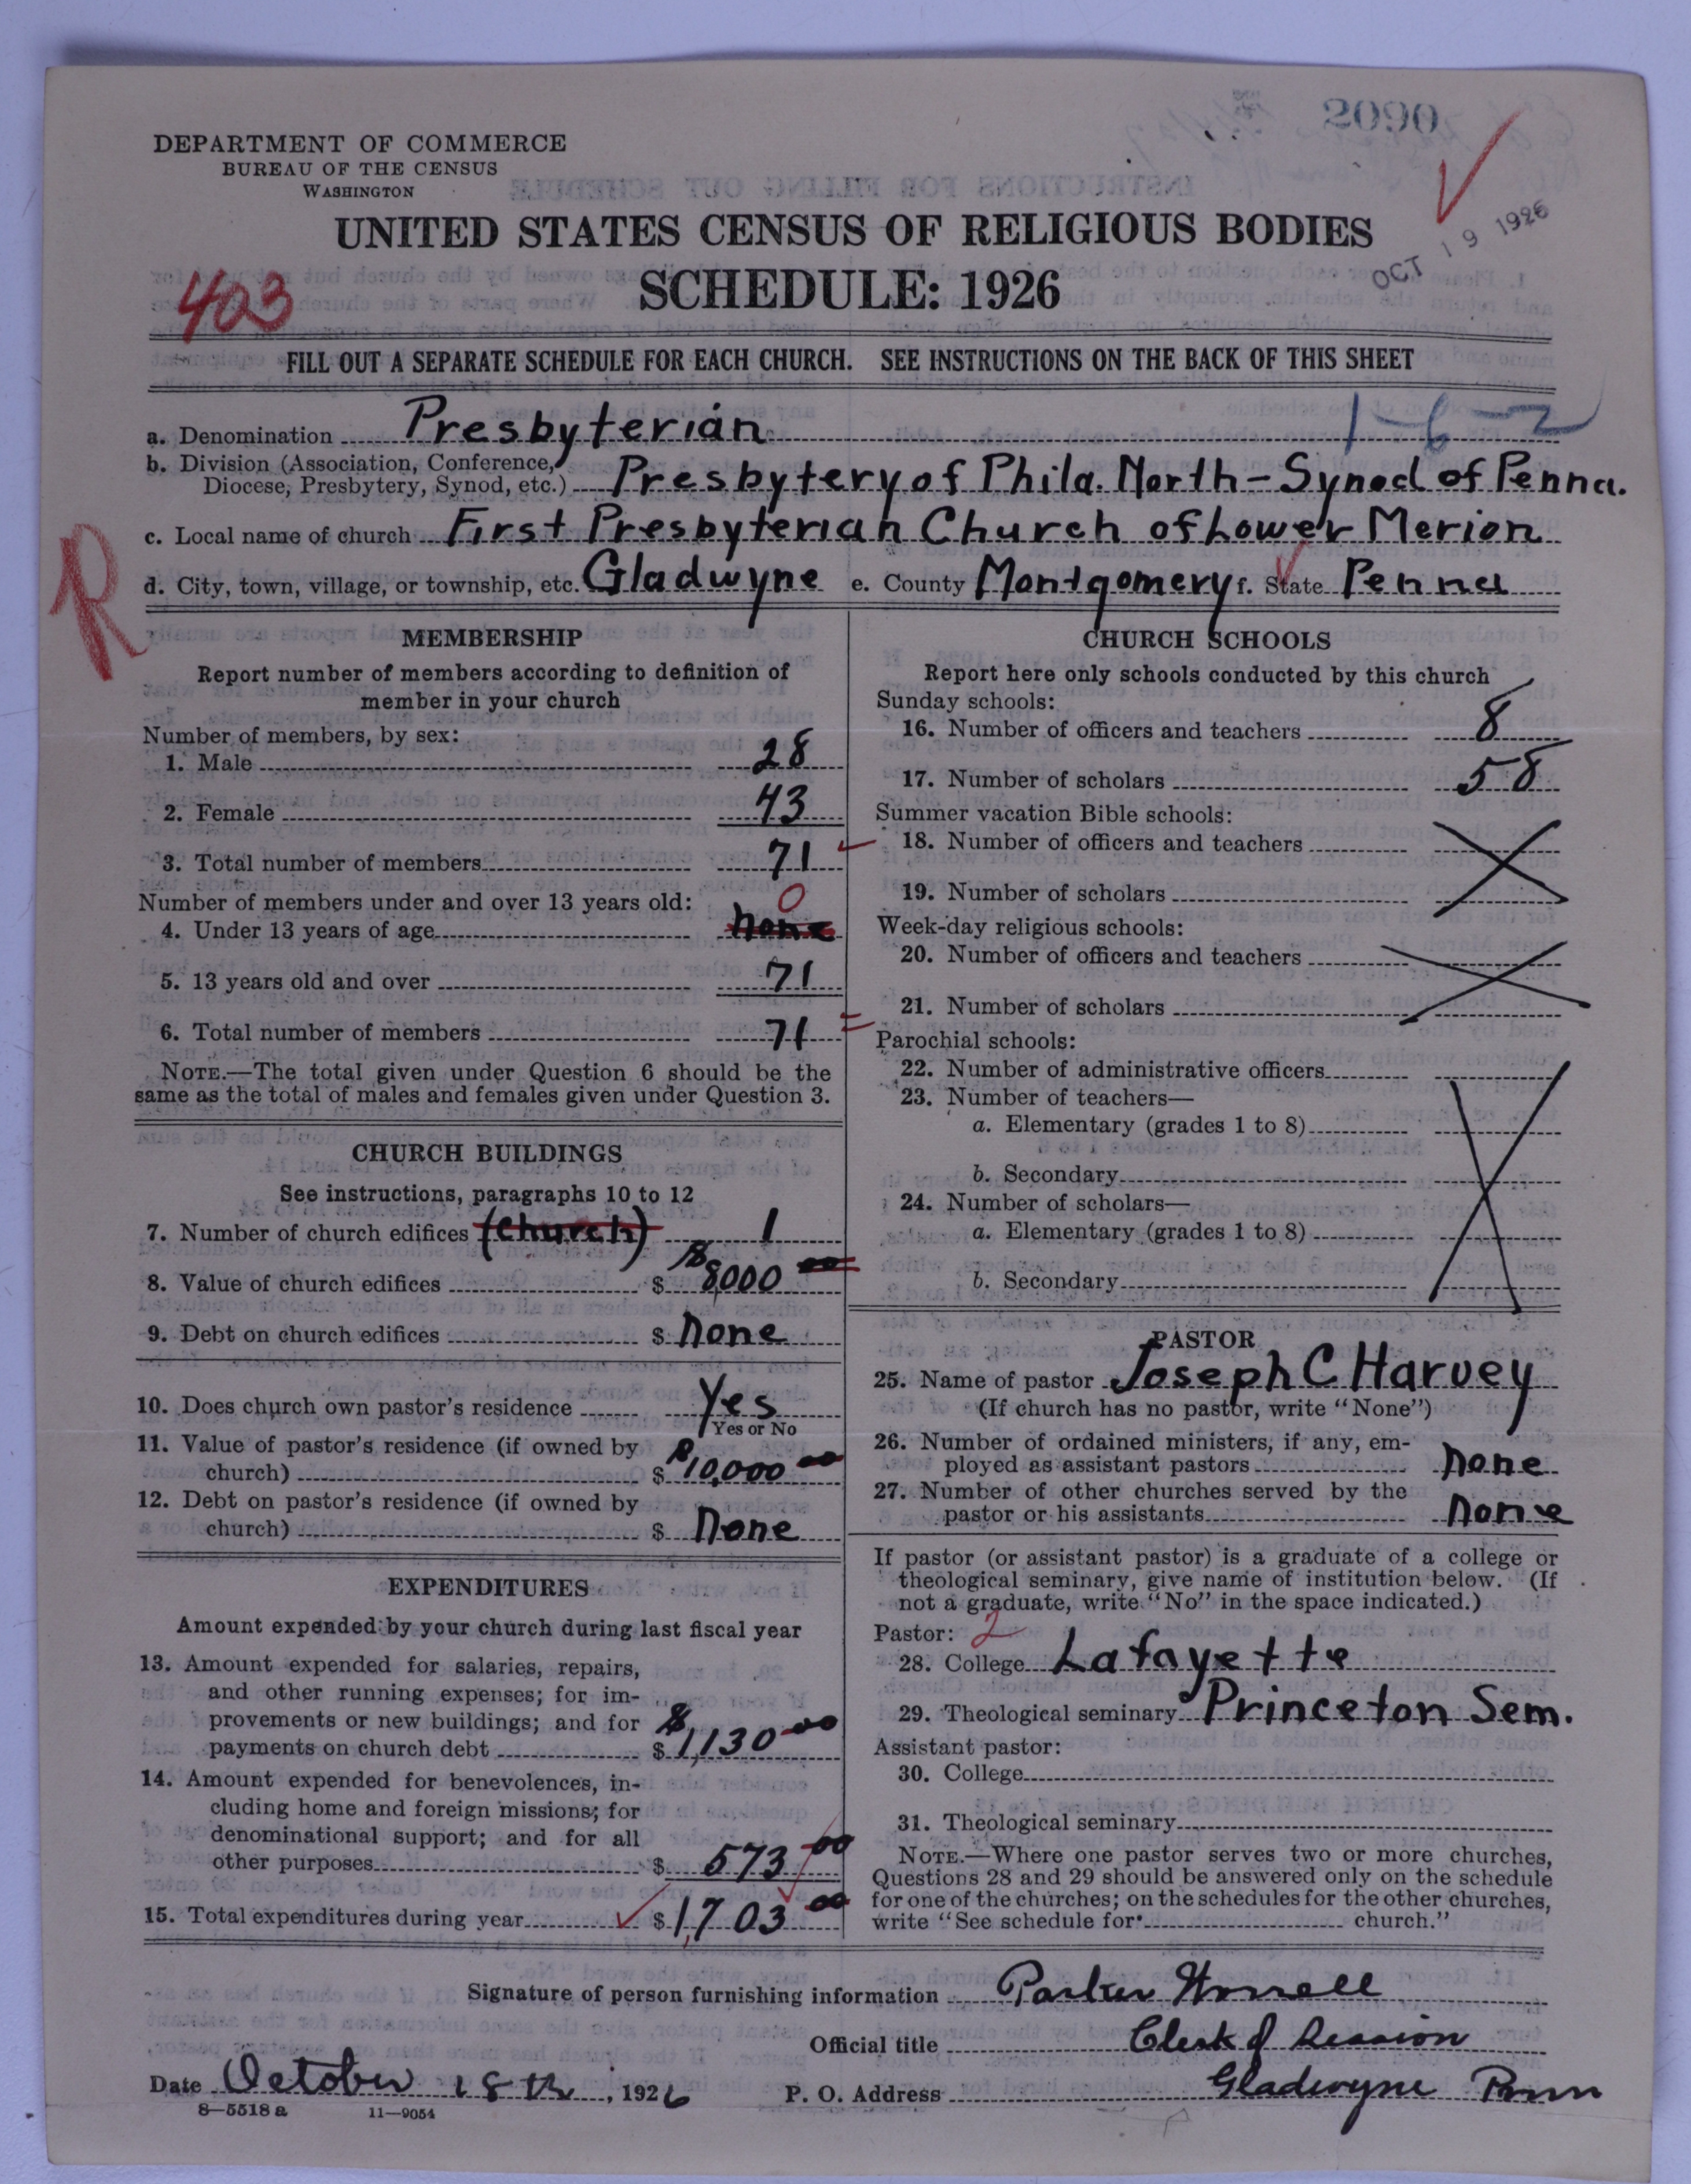 2090
DEPARTMENT OF COMMERCE
BUREAU OF THE CENSUS
WASHINGTON
UNITED STATES CENSUS OF RELIGIOUS BODIES
OCT 19 1926
SCHEDULE: 1926
403
FILL OUT A SEPARATE SCHEDULE FOR EACH CHURCH. SEE INSTRUCTIONS ON THE BACK OF THIS SHEET
1-6-2
a. Denomination Presbyterian
b. Division (Association, Conference,
Diocese, Presbytery, Synod, etc.) Presbytery of Phila. North - Synod of Penna.
c. Local name of church First Presbyterian Church of Lower Merion
R
d. City, town, village, or township, etc. Gladwyne e. County Montgomery f. State Penna
MEMBERSHIP
Report number of members according to definition of
member in your church
Number of members, by sex:
1. Male 28
2. Female 43
3. Total number of members 71
Number of members under and over 13 years old: 0
4. Under 13 years of age none
5. 13 years old and over 71
6. Total number of members 71
NOTE.—The total given under Question 6 should be the
same as the total of males and females given under Question 3.
CHURCH BUILDINGS
See instructions, paragraphs 10 to 12
7. Number of church edifices (Church) 1
8. Value of church edifices $ $8,000 00
9. Debt on church edifices $ None
10. Does church own pastor's residence Yes
Yes or No
11. Value of pastor's residence (if owned by
church) $ $10,000 00
12. Debt on pastor's residence (if owned by
church) $ None
EXPENDITURES
Amount expended by your church during last fiscal year
13. Amount expended for salaries, repairs,
and other running expenses; for im-
provements or new buildings; and for
payments on church debt $ $1,130 00
14. Amount expended for benevolences, in-
cluding home and foreign missions; for
denominational support; and for all
other purposes $ 573 00
15. Total expenditures during year $ 1,703 00
CHURCH SCHOOLS
Report here only schools conducted by this church
Sunday schools:
16. Number of officers and teachers 8
17. Number of scholars 58
Summer vacation Bible schools:
18. Number of officers and teachers
19. Number of scholars
Week-day religious schools:
20. Number of officers and teachers
21. Number of scholars
Parochial schools:
22. Number of administrative officers
23. Number of teachers—
a. Elementary (grades 1 to 8)
b. Secondary
24. Number of scholars—
a. Elementary (grades 1 to 8)
b. Secondary
PASTOR
25. Name of pastor Joseph C Harvey
(If church has no pastor, write "None")
26. Number of ordained ministers, if any, em-
ployed as assistant pastors None
27. Number of other churches served by the
pastor or his assistants None
If pastor (or assistant pastor) is a graduate of a college or
theological seminary, give name of institution below. (If
not a graduate, write "No" in the space indicated.)
Pastor: 2
28. College Lafayette
29. Theological seminary Princeton Sem.
Assistant pastor:
30. College
31. Theological seminary
NOTE.—Where one pastor serves two or more churches,
Questions 28 and 29 should be answered only on the schedule
for one of the churches; on the schedules for the other churches,
write "See schedule for church."
Signature of person furnishing information Parker Worrell
Official title Clerk of Session
Date October 18th, 1926 P. O. Address Gladwyne Penn
8—5518 a 11—9054